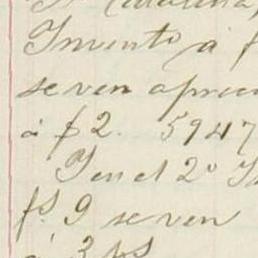 Invento á f
se ven aprec
á f 2. 5947
Y en el 2º I
fs. 9 se ven
á 3 ps